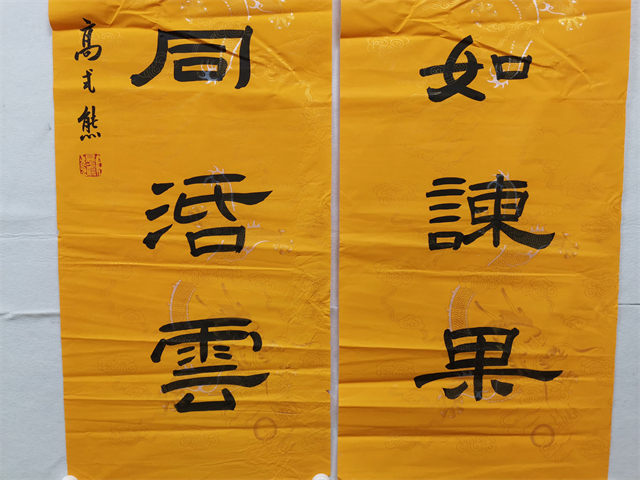 如諫果
同活雲
高式熊